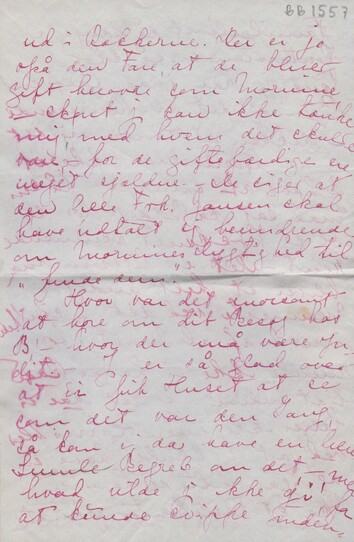 BB1557
ud i Der er jo
også den Fare, at de bliver
gift henover som Mornine
- skønt jeg kan ikke tænke
mig med hvem det skulde
være - for de giftefærdige er
meget sjældne. - De siger at
den lille Frk. Jansen skal
have udtalt sig beundrende
om Mornines Dygtighed til
"finde dem".
Hvor var det morsomt
at høre om dit Besøg hos
B. hvor du må være
jeg er så glad over
at vi fik Huset at se
som det var den Gang,
så kan vi da have en lille
Smule Begreb om det, -
hvad vilde vi ikke gi'
at kunde svippe inden-